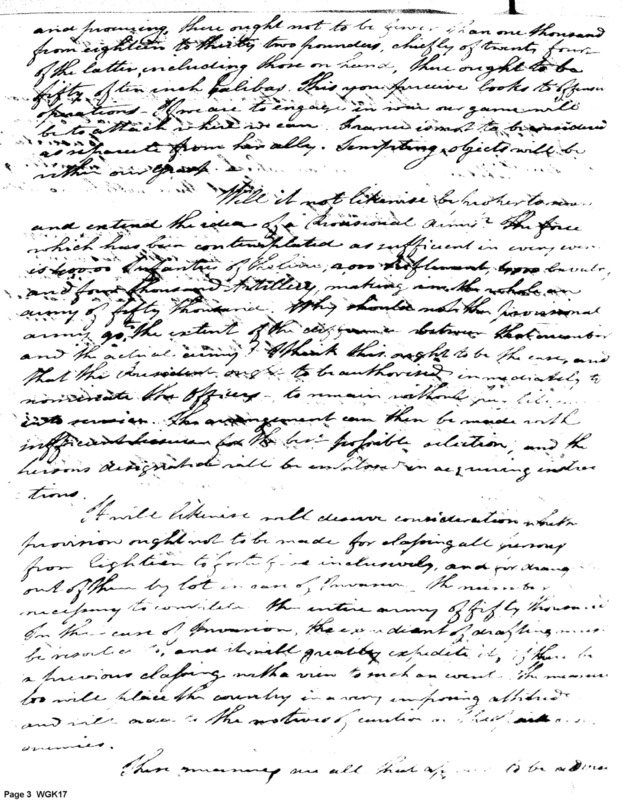 and procuring, there ought not to be fewer than one thousand
from eighteen to thirty two pounders, chiefly of twenty four
of the latter, including those on hand, there ought to be
fifty of ten inch Calibar. This you perceive looks to offensive
operations. If we are to engage in war our game will
be to attack where we can. France is not to be considered
as separate from her ally. Tempting objects will be
within our grasp.
Will it not likewise be proper to
and extend the idea of a Provisional Army? The force
which has been contemplated as sufficient in every event
is 40000 Infantry of the line, 2000 Riflemen, 4000 Cavalry,
and four thousand Artillery, making in the whole an
army of fifty thousand. Why should not the provisional
army go the extent of the difference between that number
and the actual army? I think this ought to be the case, and
that the President ought to be authorised immediately to
nominate the Officers to remain without pay
into service. The arrangement can then be made with
sufficient leisure for the best possible selection, and the
persons designated will be employed in acquiring instruc
tions.
It will likewise well deserve consideration whether
provision ought not to be made for classing all persons
from Eighteen to forty five inclusively, and for drawing
out of them by lot in case of Invasion the number
necessary to complete the entire army of fifty thousand
In the case of Invasion, the expedient of drafting must
be resorted to, and it will greatly expedite it, if there be
a previous classing with a view to such an event. The measure
too will place the country in a very imposing attitude
and will add to the motives of caution
enemies.
These measures are all that appear to be
Page 3 WGK17